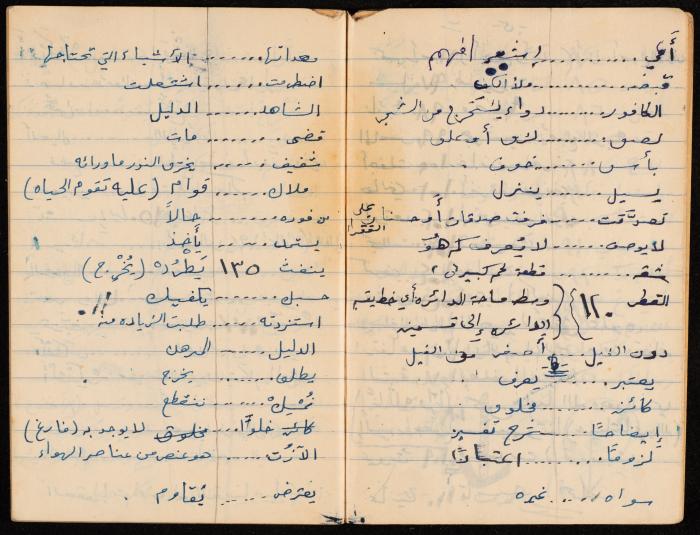 أعي ........ أشعر / أفهم
قبضه ...... ملأ الكف
الكافور ...... دواء يستخرج من الشجر
لصق ...... لزق أو علق
بأس ...... خوف
يسيل ...... ينزل
تصدَّقت ...... فرقت صدقات أو حسنات على الفقراء
لا يوصف ...... لا يُعرف كم هُوَ
شقه ...... قطعة لحم كبيرة
القطر ١٢٠ { وسط مساحة الدائرة أي خط يقسم
الدائرة إلى قسمين
دون الفيل ... أصغر من الفيل
يعتبر ...... يعرف
كائن ...... مخلوق
إيضاحًا ...... شرح تفسير
لزومًا ...... اعتبادًا
سواه ...... غيره
معداتها ...... الأشياء التي تحتاجها
اضطرمت ...... اشتعلت
الشاهد ...... الدليل
قضى ...... مات
شفيف ...... يخترق النور ما ورائه
ملاك ...... قوام (عليه تقوم الحياه)
من فوره ...... حالاً
يستمد ...... يَأخذ
ينفث ١٣٥ يَطْرُدُه (يُخْرِج)
حسبك ...... يكفيك
استزدته ...... طلبت الزياده منه
الدليل ...... المرهل
يطلق ...... يخرج
تُمْسِكْ ...... تنقطع
خلوًا ...... لا يوجد به (فارغ)
الآزُت ...... هو عنصر من عناصر الهواء
يعترض ...... يُقاوم